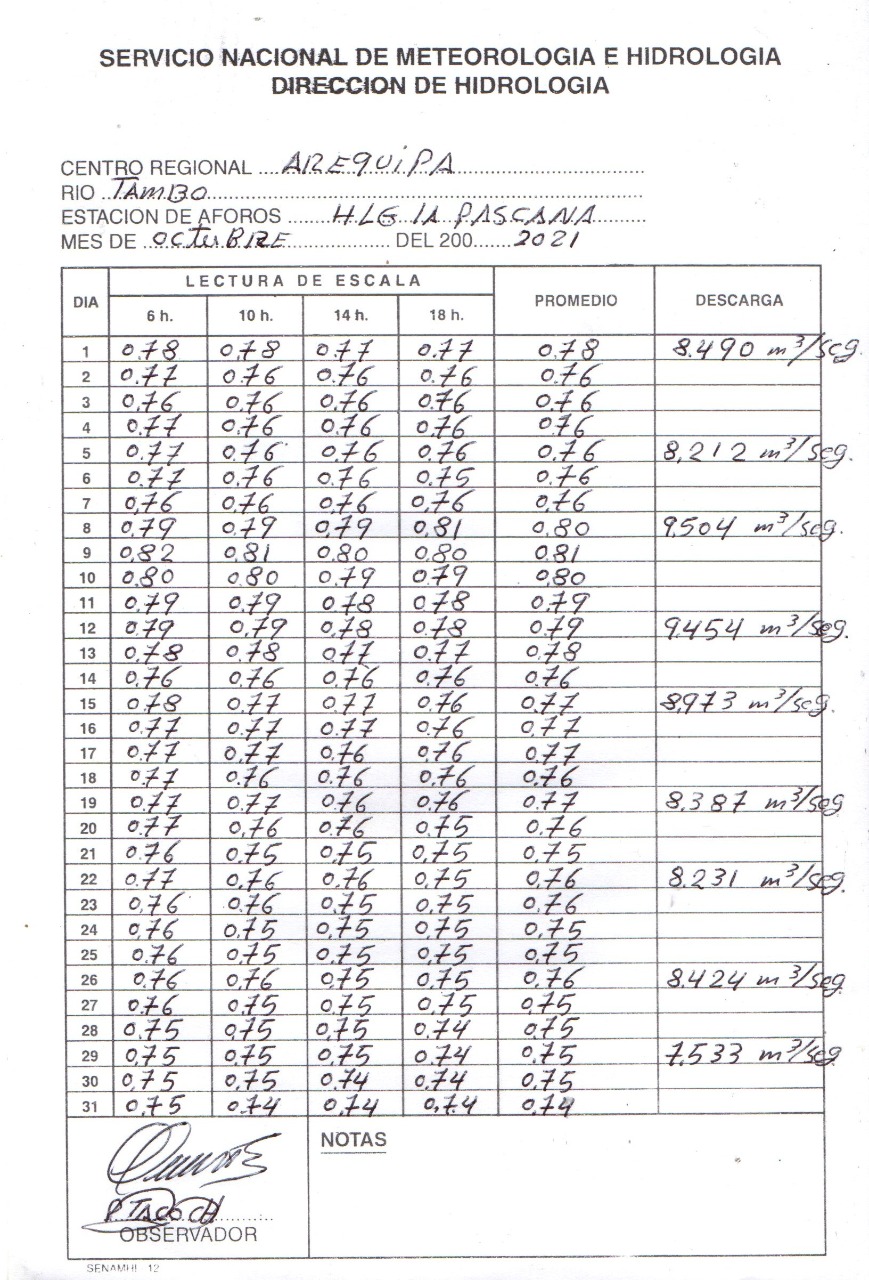 SERVICIO NACIONAL DE METEOROLOGIA E HIDROLOGIA
DIRECCION DE HIDROLOGIA
CENTRO REGIONAL ....AREQUIPA
RIO ..TAMBO
ESTACION DE AFOROS ........HLG LA PASCANA
MES DE ..OCTUBRE.................. DEL 200.......2021
DIA LECTURA DE ESCALA PROMEDIO DESCARGA
6 h. 10 h. 14 h. 18 h.
1 0.78 0.78 0.77 0.77 0.78 8.490 m³/seg.
2 0.77 0.76 0.76 0.76 0.76
3 0.76 0.76 0.76 0.76 0.76
4 0.77 0.76 0.76 0.76 0.76
5 0.77 0.76 0.76 0.76 0.76 8,212 m³/seg.
6 0.77 0.76 0.76 0.75 0.76
7 0,76 0,76 0,76 0,76 0,76
8 0.79 0.79 0.79 0,81 0,80 9.504 m³/seg.
9 0,82 0,81 0,80 0,80 0,81
10 0,80 0,80 0,79 0,79 0,80
11 0.79 0,79 0.78 0.78 0.79
12 0.79 0,79 0.78 0.78 0.79 9.454 m³/seg.
13 0.78 0.78 0.77 0.77 0.78
14 0.76 0.76 0.76 0.76 0.76
15 0.78 0.77 0.77 0.76 0.77 8,973 m³/seg.
16 0.77 0.77 0.77 0.76 0.77
17 0.77 0.77 0.76 0.76 0.77
18 0.77 0.76 0.76 0.76 0.76
19 0.77 0.77 0.76 0.76 0.77 8.387 m³/seg
20 0.77 0,76 0.76 0.75 0.76
21 0.76 0.75 0,75 0,75 0.75
22 0.77 0,76 0.76 0,75 0,76 8.231 m³/seg.
23 0,76 0.76 0.75 0,75 0,76
24 0,76 0,75 0,75 0.75 0.75
25 0.76 0,75 0,75 0,75 0,75
26 0.76 0,76 0.75 0.75 0,76 8.424 m³/seg
27 0.76 0.75 0.75 0.75 0,75
28 0.75 0,75 0,75 0.74 0,75
29 0,75 0,75 0,75 0.74 0,75 7.533 m³/seg
30 0,75 0,75 0.74 0.74 0,75
31 0,75 0.74 0.74 0,74 0,74
NOTAS
P. TACO CH
OBSERVADOR
SENAMHI 12